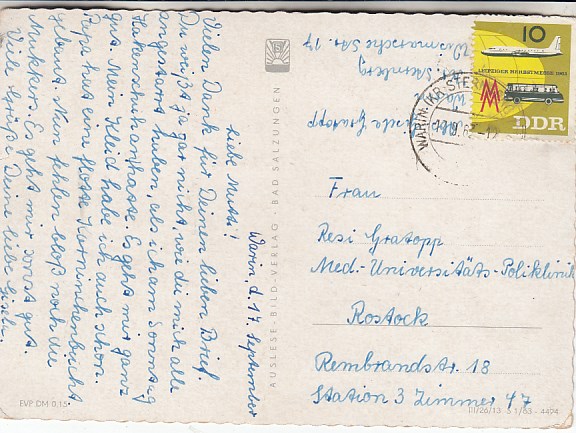 Warin, d. 17. September
Liebe Mutti!
Vielen Dank für Deinen lieben Brief.
Du weißt ja gar nicht, wie du mich alle
angestarrt haben, als ich am Sonntag
ankam. Es geht mir ganz
gut. Mein Kleid habe ich auch schon.
Papa hat ein
gebaut. Nun fehlen bloß noch die
Mukkers. Es geht mir sonst gut.
Viele Grüße Deine liebe Gisela.
AUSLESE-BILD-VERLAG · BAD SALZUNGEN
EVP DM 0,15
Gratopp
Sternberg
Wismarsche Str. 17
10
LEIPZIGER HERBSTMESSE 1963
MM
DDR
WARIN (KR. STER
Frau
Resi Gratopp
Med.-Universitäts-Poliklinik
Rostock
Rembrandstr. 18
Station 3 Zimmer 47
III/26/13 S 1/63 - 4404